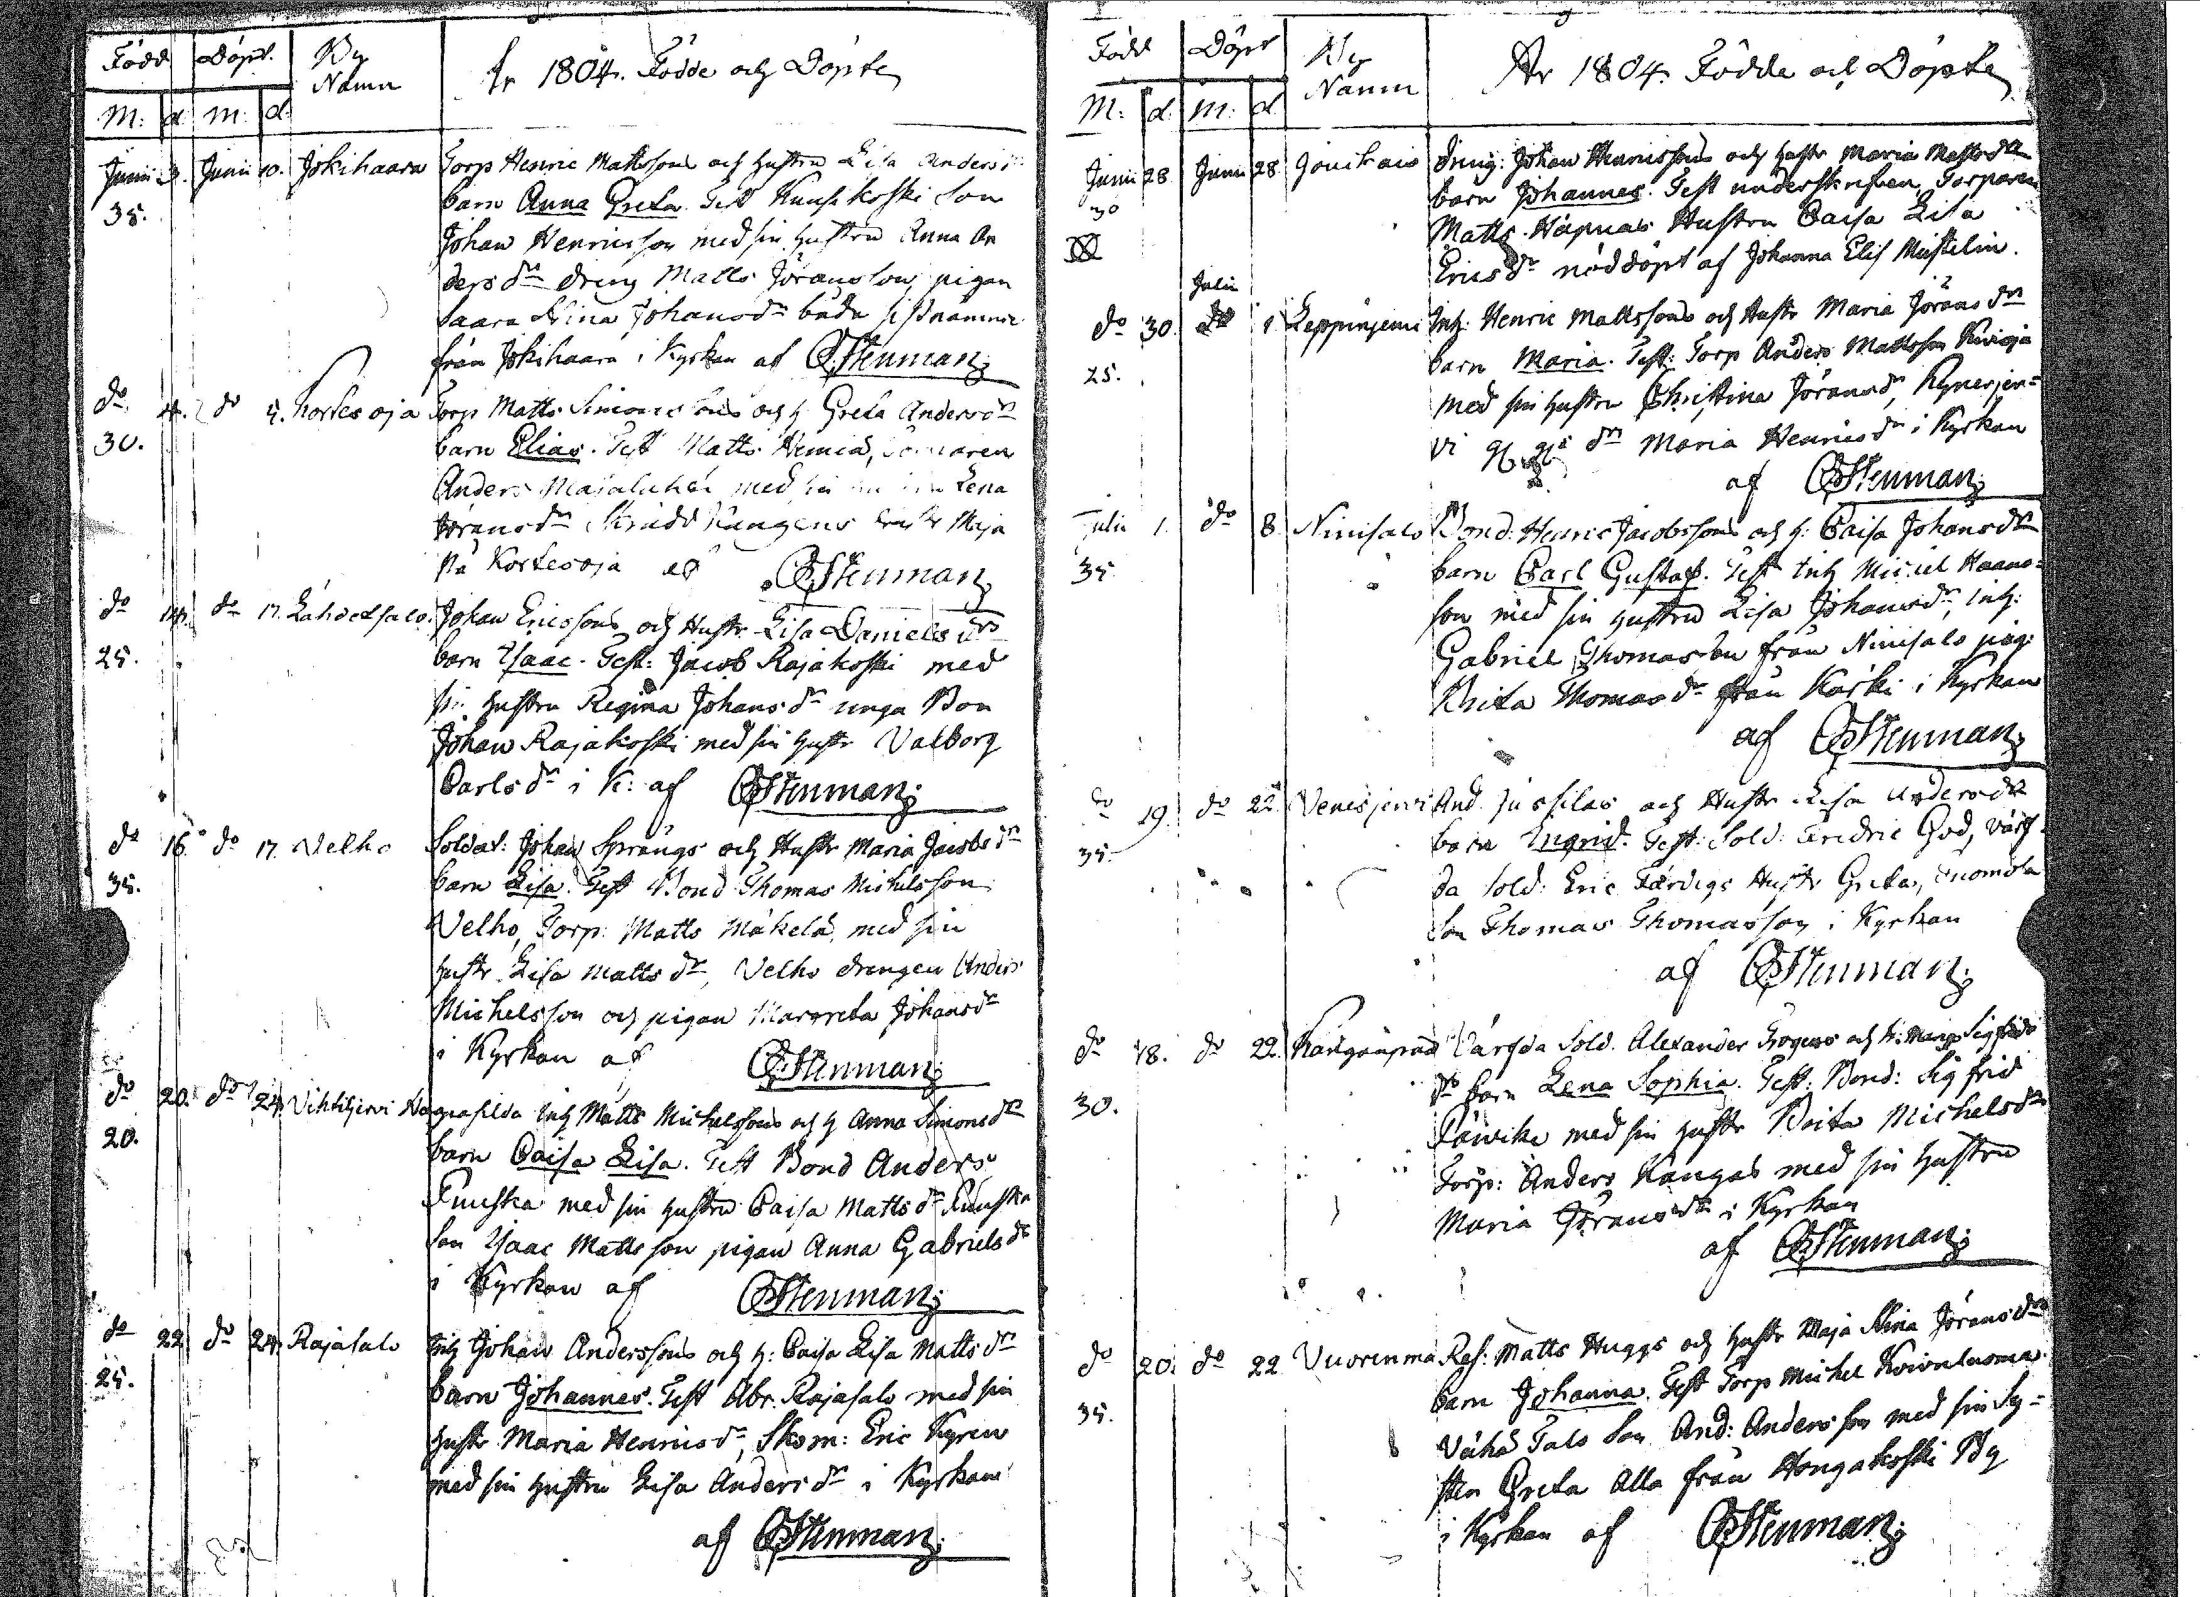 Född Döpt. By Namn År 1804. Födde och Döpte
M: d m: d.
Junii 3. Junii 10. Jokihaara Torp Henric Mattssons och hustru Lisa Anders dr
35. barn Anna Greta. Test Kuusikoski Son
Johan Henricsson med sin hustru Anna An
ders dr dreng Matts Jöransson, pigan
Saara Stina Johansdr båda sistnämnde
från Jokihaara i Kyrkan af CJStenman;
do 4. do 5. Kortesoja Torp Matts Simons sons och h Greta Andersdr
30. barn Elias. Test Matts
Anders med sin Lena
Jöransdr Maja
på Kortesoja af CJStenman
do 14. do 17. Lähdetsalo. Johan Ericssons och Hustr. Lisa Daniels drs
25. barn Isaac. Test: Jacob Rajakoski med
sin hustru Regina Johansdr unga Bon
Johan Rajakoski med sin hustr Valborg
Carlsdr i K: af CJStenman;
do 16. do 17. Velho Soldat: Johan Sprängs och Hustr Maria Jacobsdr
35. barn Lisa. Test Bond Thomas Michelsson
Velho, Torp: Matts Mäkelä, med sin
hustr. Lisa Matts dr, Velho drengen Anders
Michelsson och pigan Margreta Johansdr
i Kyrkan af CJStenman;
do 20. do 24. Vihtijervi Inh Matts Michelssons och h Anna Simonsdr
20. barn Caisa Lisa. Test Bond Anders
Puuska med sin hustru Caisa Mattsdr Puuska
Son Isaac Mattsson pigan Anna Gabrielsdr
i Kyrkan af CJStenman;
do 22. do 24. Rajasalo Inh Johan Anderssons och h: Caisa Lisa Mattsdr
25. barn Johannes. Test Abr. Rajasalo med sin
hustr Maria Henricsdr, Skom: Eric Kyren
med sin hustru Lisa Anders dr i Kyrkan
af CJStenman;
Född Döpt By Namn År 1804. Födde och Döpte
M: d. m: d
Junii 28. Junii 28 Jouikais dreng: Johan Henricssons och hustr Maria Mattsdr
30 barn Johannes. Test underskrefven, Torparen
Matts Häpnas Hustru Caisa Lisa
Ericsdr nöddöpt af Johanna Elis Mustelin.
Julii
do 30. 1. Leppinjervi Inh: Henric Mattssons och Hustr Maria Jöransdr
25. barn Maria. Test: Torp Anders Mattsson Kivioja
med sin hustru Christina Jöransdr, Kynerjer=
vi dr Maria Henricsdr i Kyrkan
af CJStenman;
Julii 1. do 8 Ninisalo Bond: Henric Jacobssons och h: Caisa Johansdr
35 barn Carl Gustaf. Test Inh Michel Haans=
son med sin hustru Lisa Johansdr, inh:
Gabriel Thomasson från Ninisalo pig:
Brita Thomasdr från Karki i Kyrkan
af CJStenman;
do 19. do 22. Venesjervi And. Jussilas och Hustr. Lisa Andersdr
35. barn Ingrid. Test: Sold: Fredric God, värf=
da Sold: Eric Færdigs Hustr Greta, Tuomola
Son Thomas Thomasson i Kyrkan
af CJStenman;
do 18. do 22. Kangonpää Värfda Sold. Alexander Trogens och h: Maria Sigfrids
30. dr barn Lena Sophia. Test: Bond: Sigfrid
med sin hustr Brita Michelsdr
Torp: Anders Kangas med sin hustru
Maria Jöransdr i Kyrkan
af CJStenman;
do 20. do 22 Vuorenma Res: Matts Huggs och hustr Maja Stina Jöransdr
35. barn Johanna. Test Torp Michel Koivuluoma
Vähä Talo Son And: Andersson med sin Sy=
ster Greta Alla från Hongakoski By
i Kyrkan af CJStenman;